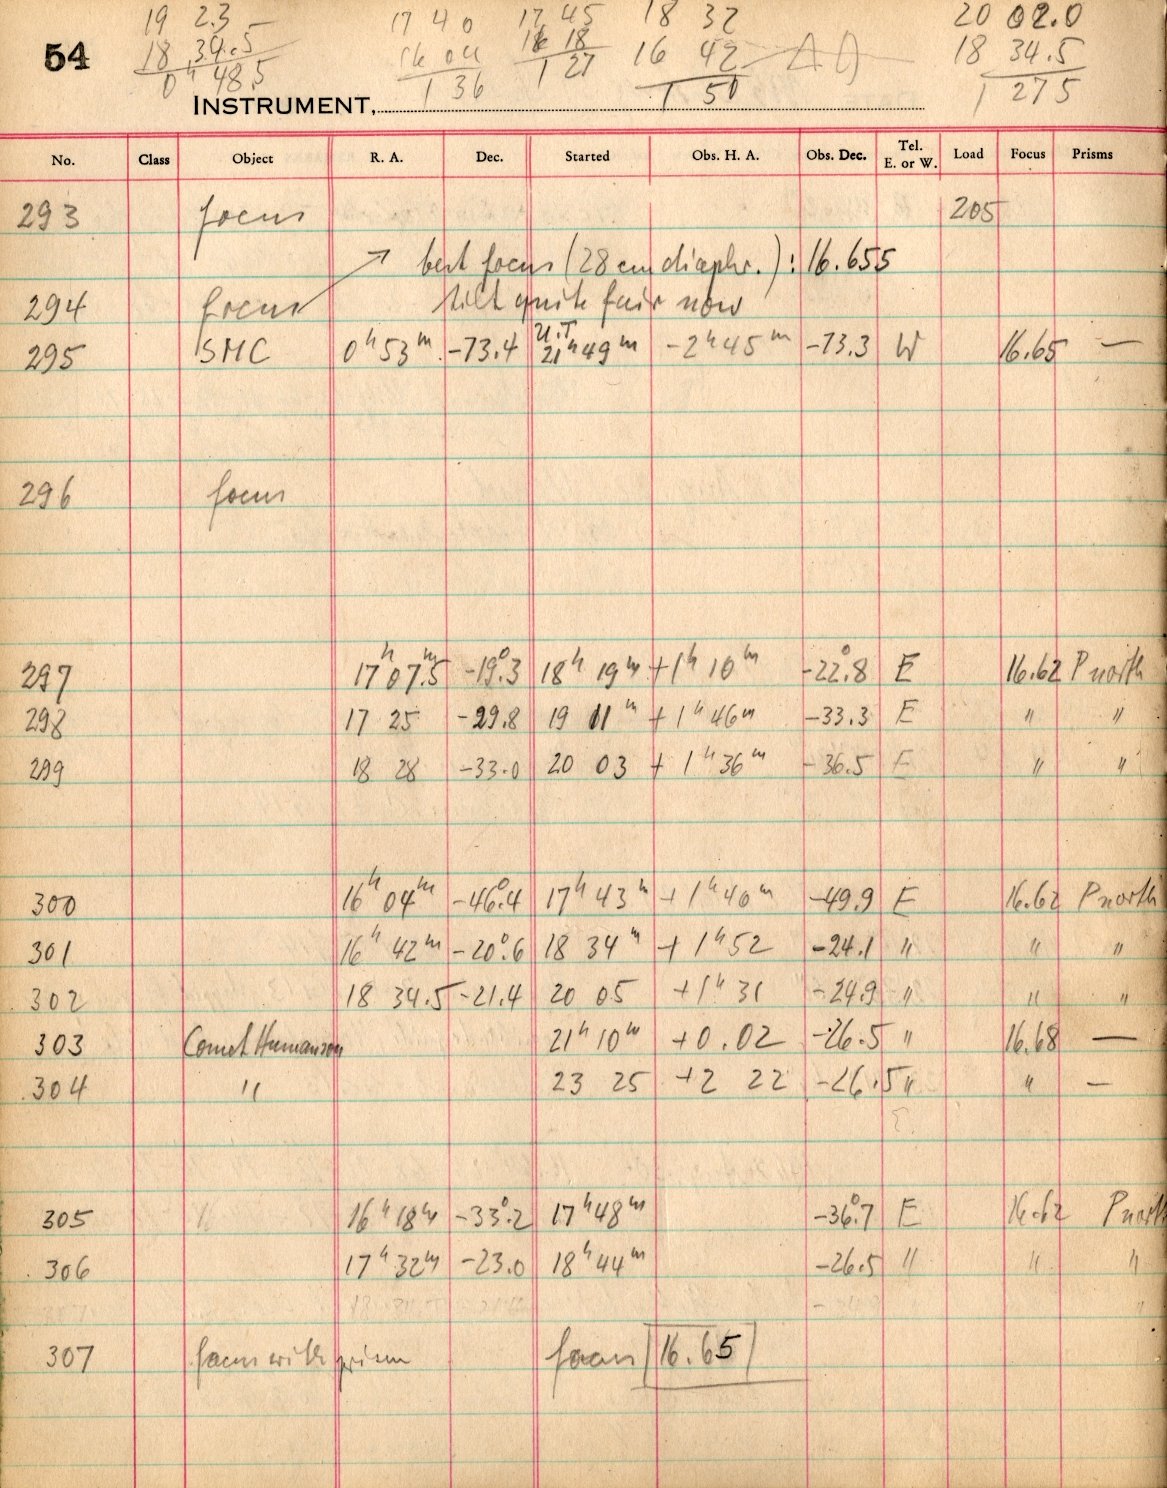 19 23 17 40 17 45 18 32 20 02.0
54 18 34.5 16 04 16 18 16 42 18 34.5
0ʰ 48.5 1 36 1 27 1 50 1 27 5
INSTRUMENT,
No. Class Object R. A. Dec. Started Obs. H. A. Obs. Dec. Tel. E. or W. Load Focus Prisms
293 focus 205
best focus (28 cm diaphr.) : 16.655
294 focus tilt quite fair now
295 SMC 0ʰ53ᵐ -73.4 U.T 21ʰ49ᵐ -2ʰ45ᵐ -73.3 W 16.65 —
296 focus
297 17ʰ07ᵐ.5 -19°.3 18ʰ 19ᵐ +1ʰ 10ᵐ -22°.8 E 16.62 P north
298 17 25 -29.8 19 11ᵐ +1ʰ46ᵐ -33.3 E " "
299 18 28 -33.0 20 03 +1ʰ36ᵐ -36.5 E " "
300 16ʰ 04ᵐ -46°.4 17ʰ 43ᵐ +1ʰ40ᵐ -49.9 E 16.62 P north
301 16ʰ 42ᵐ -20°.6 18 34ᵐ +1ʰ52 -24.1 " " "
302 18 34.5 -21.4 20 05 +1ʰ 31 -24.9 " " "
303 Comet Humanson 21ʰ10ᵐ +0.02 -26.5 " 16.68 —
304 " 23 25 +2 22 -26.5 " " —
305 16ʰ18ᵐ -33°.2 17ʰ48ᵐ -36°.7 E 16.62 P north
306 17ʰ32ᵐ -23.0 18ʰ44ᵐ -26.5 " " "
307 focus with prism focus 16.65